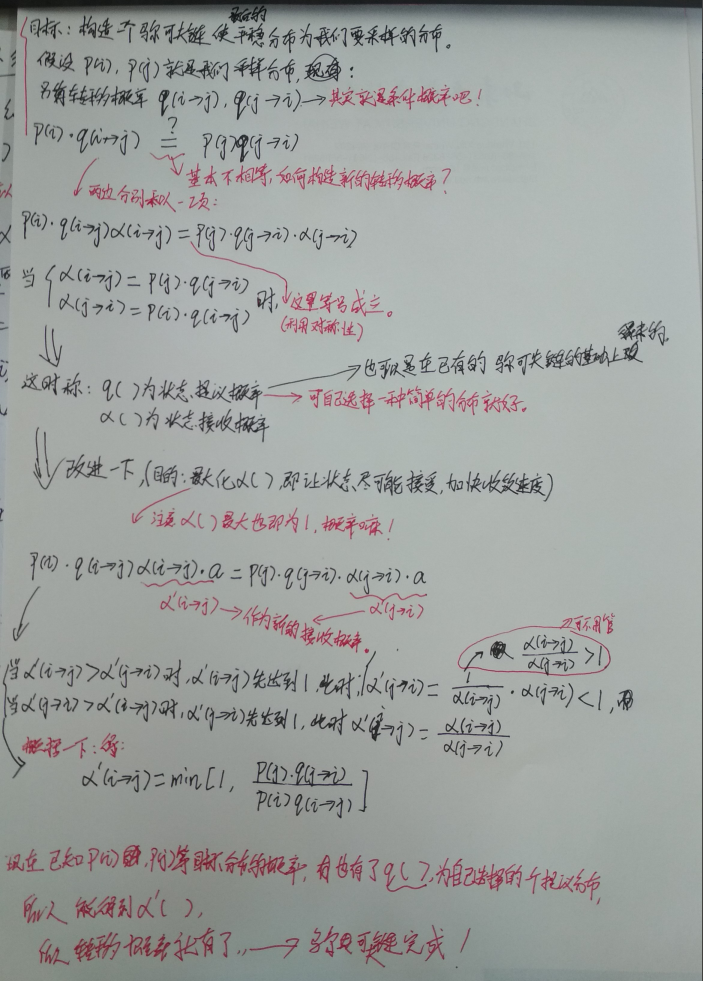 最后的
目标：构造一个马尔可夫链 使 平稳分布为我们要采样的分布。
假设 P(i), P(j) 就是我们采样分布，现有：
另有转移概率 q(i→j), q(j→i) → 其实就是条件概率吧！
P(i)·q(i→j) =? P(j)q(j→i)
基本不相等，如何构造新的转移概率？
两边分别乘以一项：
P(i)·q(i→j)α(i→j) = P(j)·q(j→i)·α(j→i)
当 { α(i→j) = P(j)·q(j→i)
α(j→i) = P(i)·q(i→j) 时， 这里等号成立。
(利用对称性)
得来的。
这时称：q( ) 为状态提议概率 → 也可以是在已有的 马尔可夫链的基础上改
α( ) 为状态接收概率 → 可自己选择一种简单的分布就好。
改进一下，(目的：最大化α( )，即让状态尽可能接受，加快收敛速度)
注意 α( ) 最大也即为1，概率嘛！
P(i)·q(i→j)α(i→j)·a = P(j)·q(j→i)·α(j→i)·a
α'(i→j) → 作为新的接收概率。 ← α'(j→i)
可不用管
α(i→j)/α(j→i) > 1
当α'(i→j)>α'(j→i)时，α'(i→j)先达到1，此时，α'(j→i) = 1/α(i→j) · α(j→i) < 1，
当α'(j→i)>α'(i→j)时，α'(j→i)先达到1，此时 α'(i→j) = α(i→j)/α(j→i)
概括一下：得：
α'(i→j) = min[1, P(j)·q(j→i)/P(i)q(i→j)]
现在 已知P(i) P(j)等目标分布的概率，有也有了q( )，为自己选择的一个提议分布，
所以 能得到α'( )，
故 转移概率就有了... → 马尔可夫链完成！